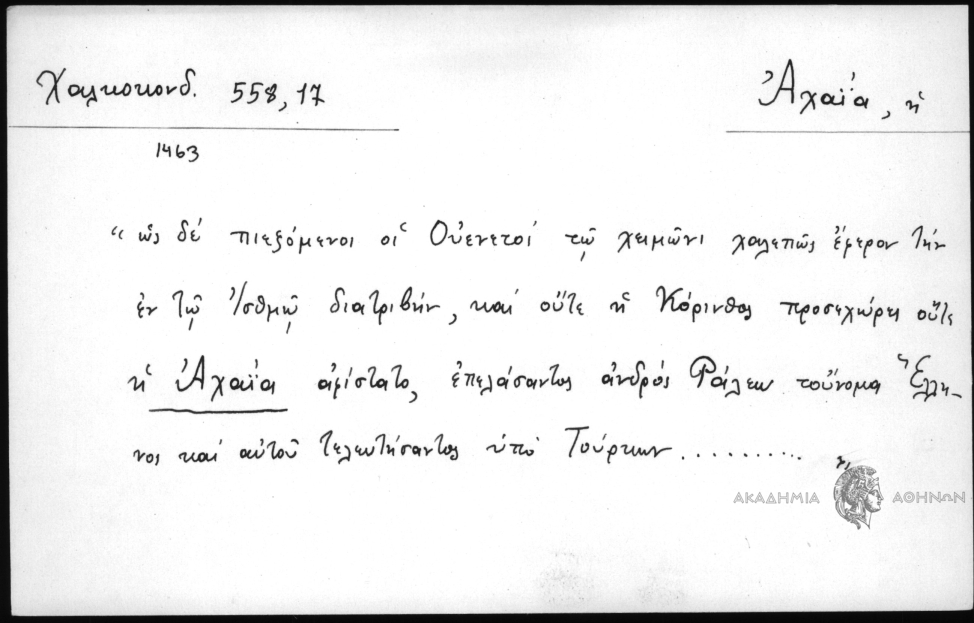 Χαλκοκονδ. 558,17
Ἀχαΐα, ἡ
1463
“ ὡς δέ πιεζόμενοι οἱ Οὐενετοί τῷ χειμῶνι χαλεπῶς ἔφερον τήν
ἐν τῷ Ἰσθμῷ διατριβήν, καί οὔτε ἡ Κόρινθος προσεχώρει οὔτε
ἡ Ἀχαΐα ἀφίστατο, ἐπελάσαντος ἀνδρός Ῥάλεω τοὔνομα Ἕλλη-
νος καί αὐτοῦ τελευτήσαντος ὑπό Τούρκων .......... ”
ΑΚΑΔΗΜΙΑ ΑΘΗΝΩΝ